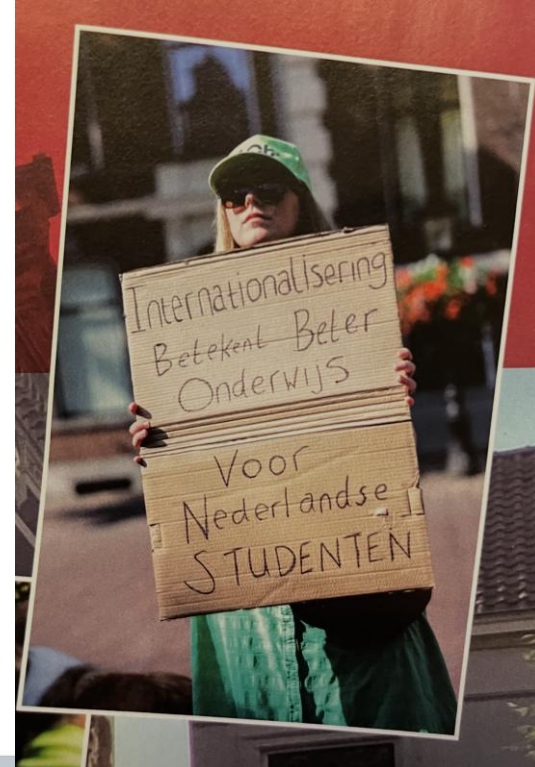 Internationalisering
Betekent Beter
Onderwijs
Voor
Nederlandse
STUDENTEN